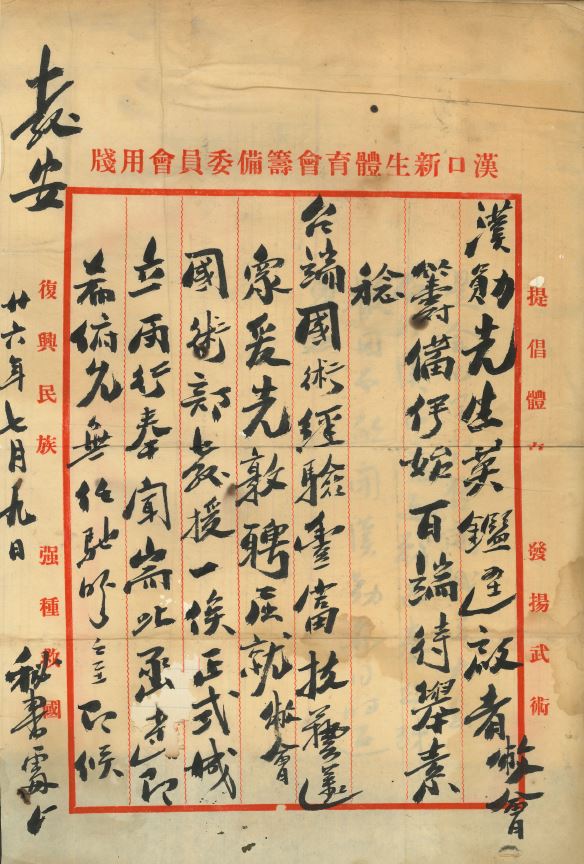 漢口新生體育會籌備委員會用牋
提倡體育 發揚武術
漢勛先生英鑑逕啟者敝會
籌備伊始百端待舉素
稔
台端國術經驗豐富技藝
衆爰先敦聘屈就敝會
國術部教授一俟正式成
立再行奉聞耑此函達即
希俯允無任 即候
教安
復興民族 强種救國
廿六年七月九日
秘書處